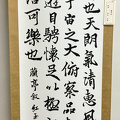 也天朗氣清惠風
宇宙之大俯察品
遊目騁懷足以極
信可樂也 蘭亭敘